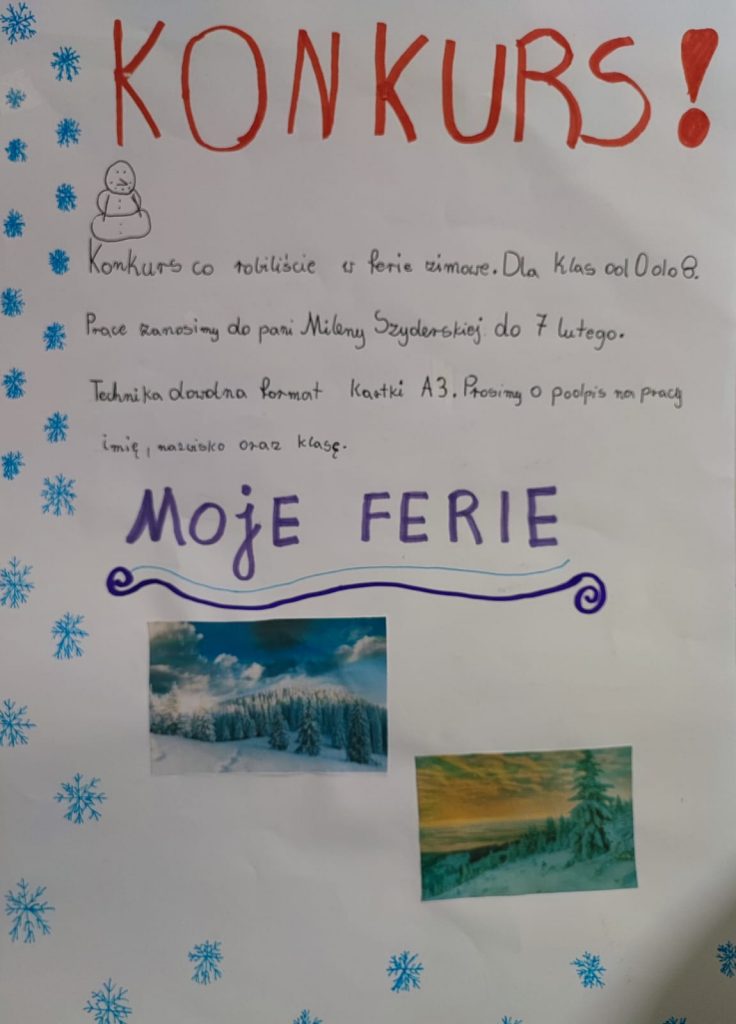 KONKURS!
Konkurs co robiliście w ferie zimowe. Dla klas od 0 do 8.
Prace zanosimy do pani Mileny Szyderskiej do 7 lutego.
Technika dowolna format kartki A3. Prosimy o podpis na pracy
imię, nazwisko oraz klasę.
MOjE FERIE